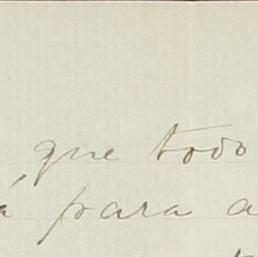 que todo
á para a